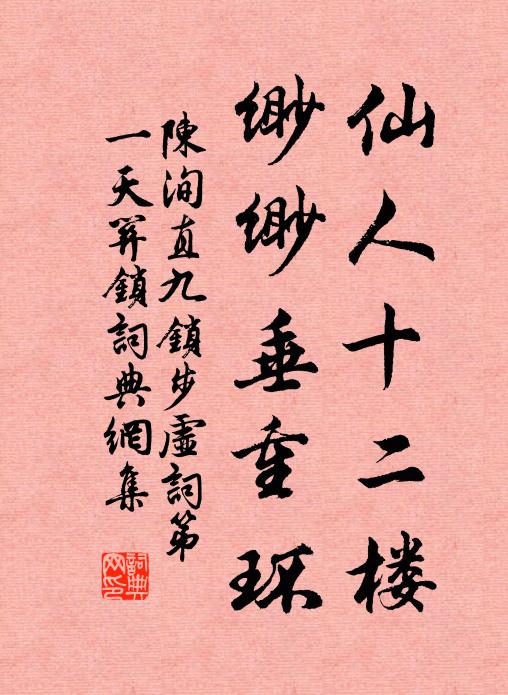 仙人十二楼
缈缈垂重环
陳洵直九鎖步虛詞第
一天關鎖詞典網集
詞典網印